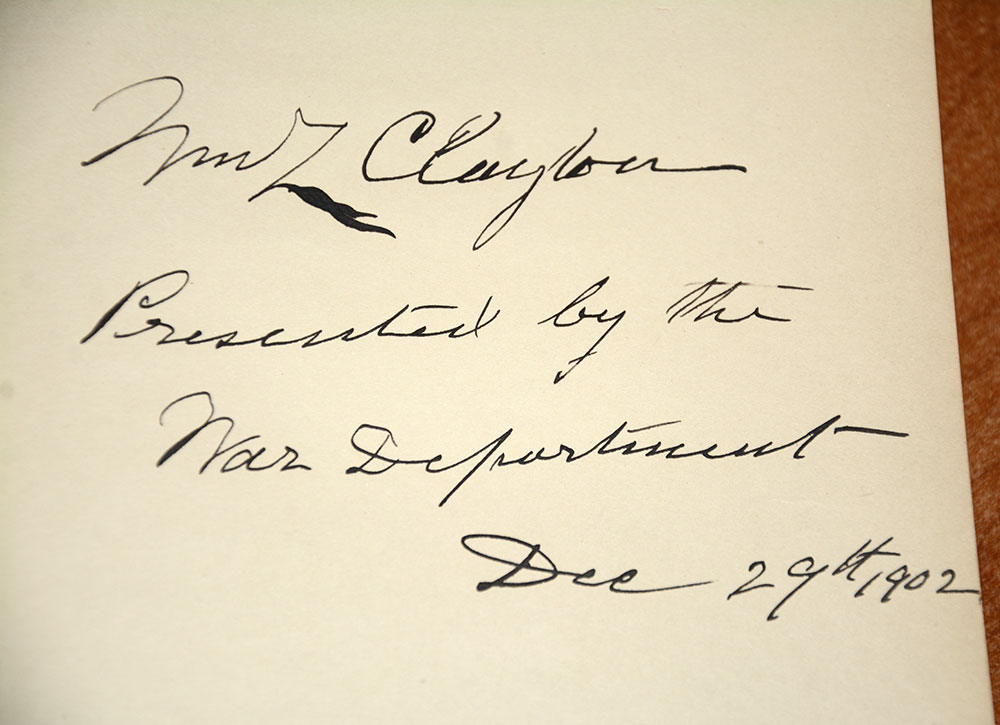 Wm Z Clayton
Presented by the
War Department
Dec 29th 1902